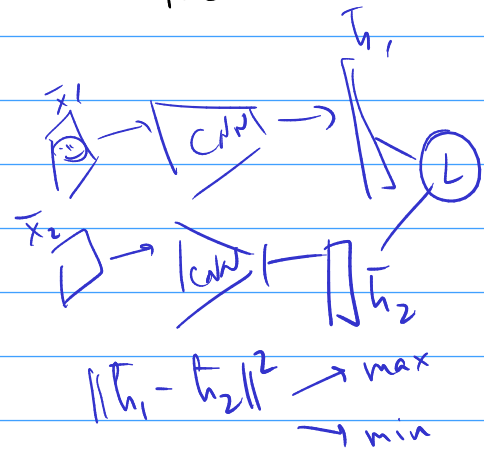 h̄₁
x̄¹
CNN
L
x̄₂
CNN
h̄₂
||h̄₁ - h̄₂||² → max
→ min